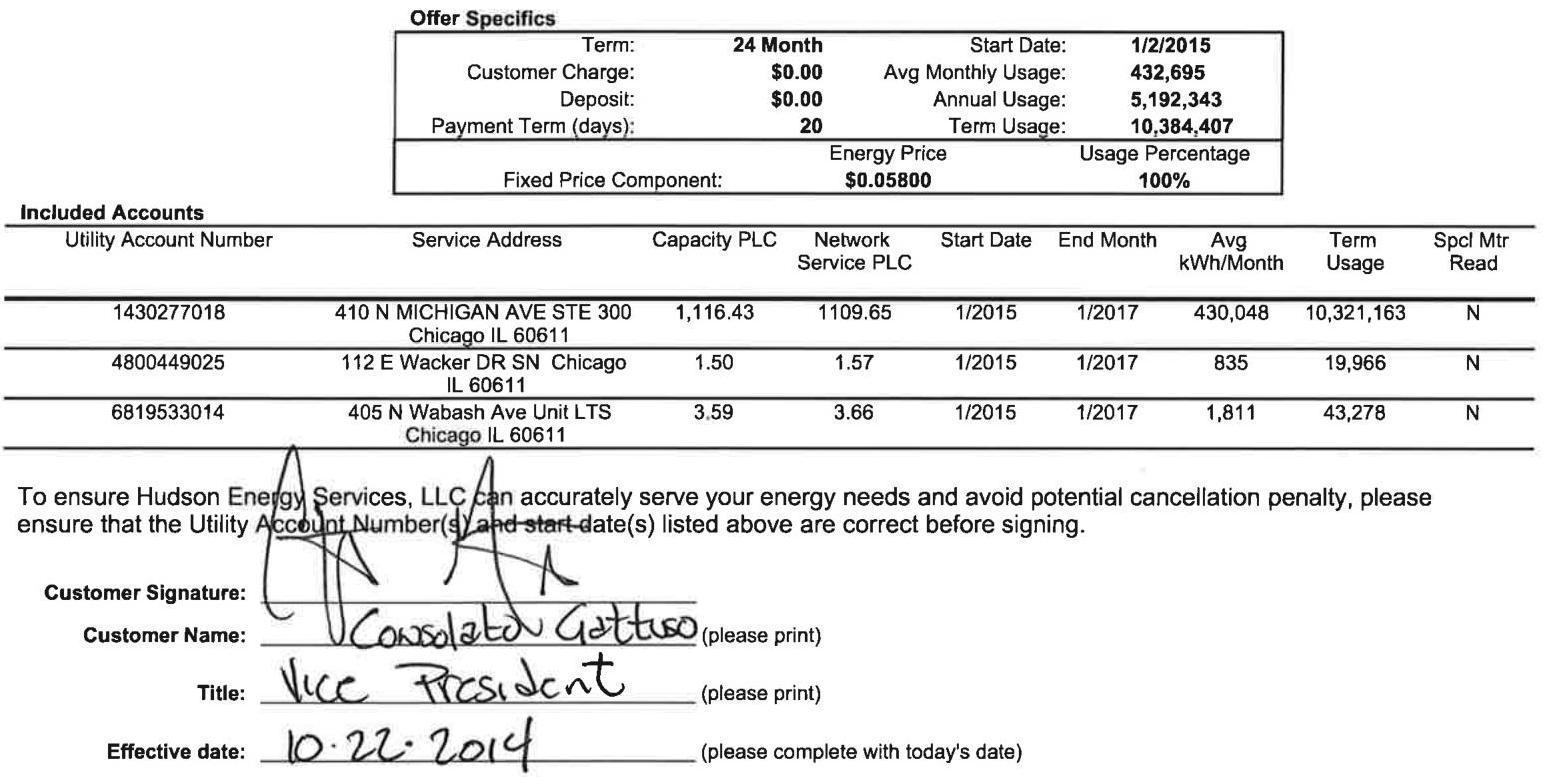 Offer Specifics
Term: 24 Month Start Date: 1/2/2015
Customer Charge: $0.00 Avg Monthly Usage: 432,695
Deposit: $0.00 Annual Usage: 5,192,343
Payment Term (days): 20 Term Usage: 10,384,407
Energy Price Usage Percentage
Fixed Price Component: $0.05800 100%
Included Accounts
Utility Account Number Service Address Capacity PLC Network Start Date End Month Avg Term Spcl Mtr
Service PLC kWh/Month Usage Read
1430277018 410 N MICHIGAN AVE STE 300 1,116.43 1109.65 1/2015 1/2017 430,048 10,321,163 N
Chicago IL 60611
4800449025 112 E Wacker DR SN Chicago 1.50 1.57 1/2015 1/2017 835 19,966 N
IL 60611
6819533014 405 N Wabash Ave Unit LTS 3.59 3.66 1/2015 1/2017 1,811 43,278 N
Chicago IL 60611
To ensure Hudson Energy Services, LLC can accurately serve your energy needs and avoid potential cancellation penalty, please
ensure that the Utility Account Number(s) and start date(s) listed above are correct before signing.
Customer Signature:
Customer Name: Consolato Gattuso (please print)
Title: Vice President (please print)
Effective date: 10.22.2014 (please complete with today's date)